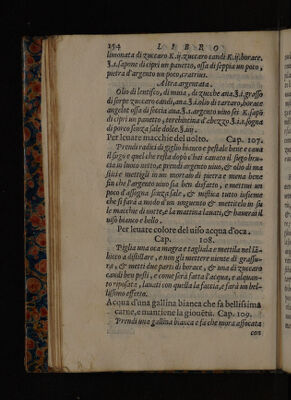 254 LIBRO
limonata di zuccaro K.ij. zuccaro candi K.ij. borace,
3.1. sapone di cipri un panetto, ossa di seppia un poco,
pietra d'argento un poco, cratrius.
Altra argentata.
Olio di lentisco, di mina, di zucche ana.3.i. grasso
di serpe zuccaro candi, ana.3.i. olio di tartaro, borace
angelot ossa di faccia ana.3.1. argento uiuo
di cipri un panetto, terebentina d'abezzo
di porco senza sale dolce. 3.iij.
Per leuare macchie del uolto. Cap. 107.
Prendi radici di giglio bianco e pestale bene e caua
il sugo e quel che resta dopò c'hai cauato il sugo bru-
cia in luoco netto, e prendi argento uiuo, & olio di ma
stici e mettigli in un mortaio di pietra e mena bene
sin che l'argento uiuo sia ben disfatto, e mettiui un
poco d'assogna senza sale, & mistica tutto insieme
che si farà a modo d'un unguento & mettitelo in su
le macchie di notte, e la mattina lauati, & hauerai il
uiso bianco e bello.
Per leuare colore del uiso acqua d'oca.
Cap. 108.
Piglia una oca magra e tagliala e mettila nel lã-
bicco a distillare, e non gli mettere niente di grassu-
ra, & metti due parti di borace, & una di zuccaro
candi ben pesti, e come sarà fatta l'acqua, e alquan-
to riposata, lauati con quella la faccia, e farà un bel-
lissimo effetto.
Acqua d'una gallina bianca che fa bellissima
carne, e mantiene la giouẽtù. Cap. 109.
Prendi una gallina bianca e fa che mora affocata
con